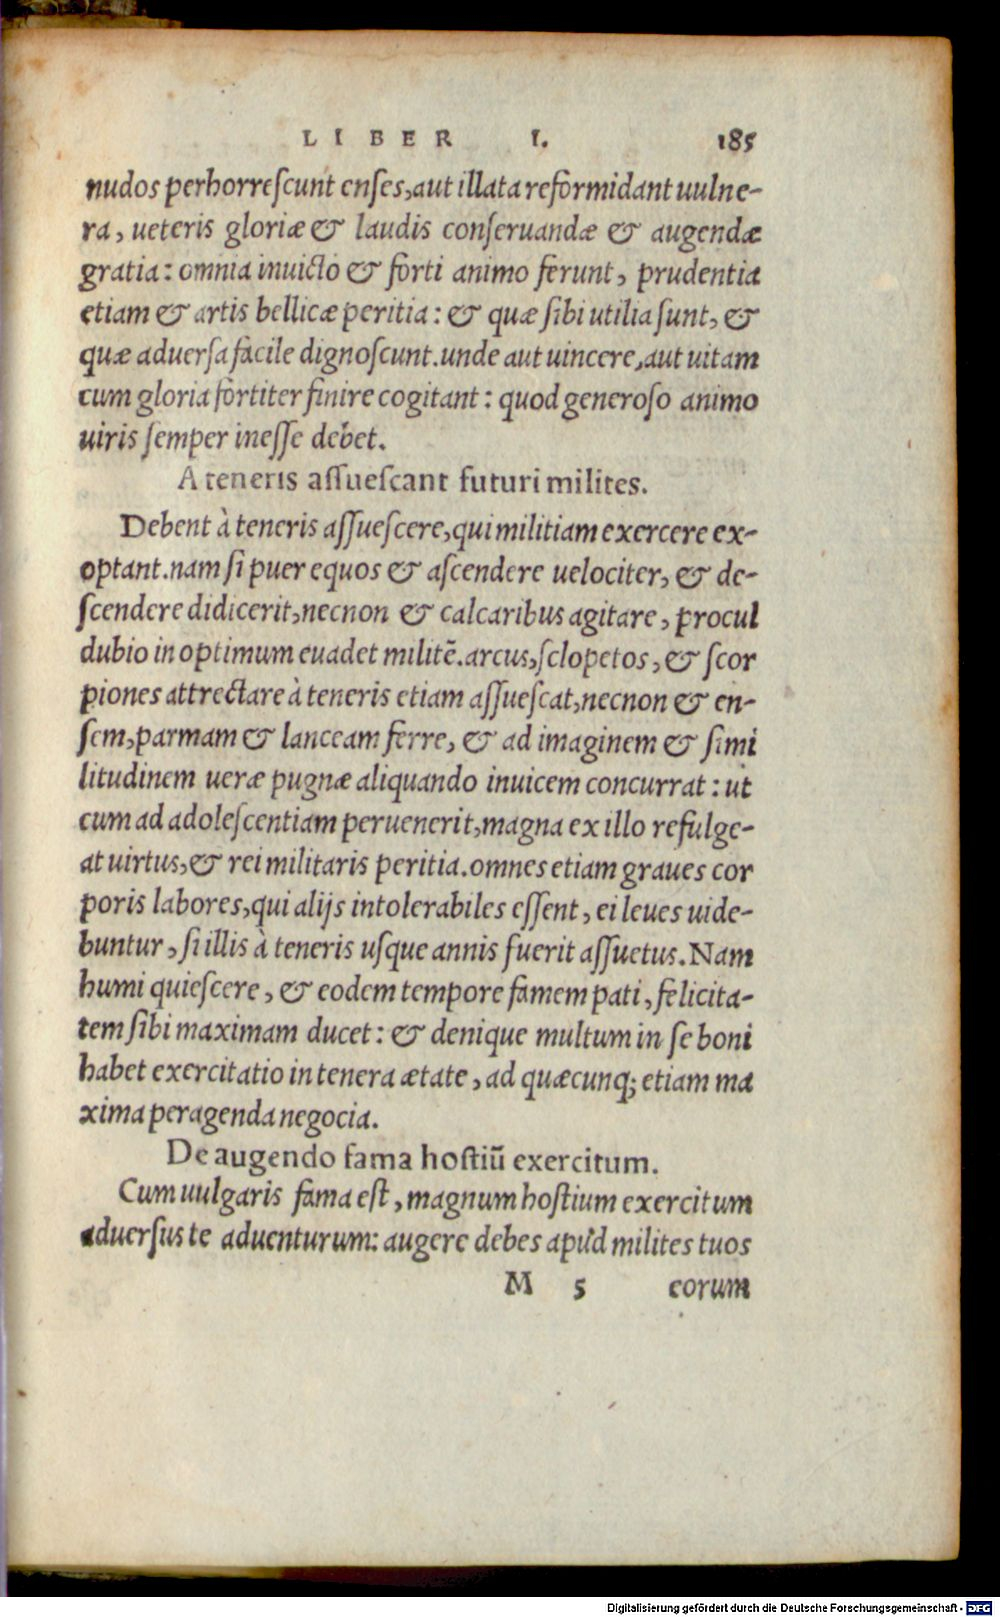 LIBER I. 185
nudos perhorreſcunt enſes, aut illata reformidant uulne-
ra, ueteris gloriæ & laudis conſeruandæ & augendæ
gratia: omnia inuicto & forti animo ferunt, prudentia
etiam & artis bellicæ peritia: & quæ ſibi utilia ſunt, &
quæ aduerſa facile dignoſcunt. unde aut uincere, aut uitam
cum gloria fortiter finire cogitant: quod generoſo animo
uiris ſemper ineſſe debet.
A teneris aſſueſcant futuri milites.
Debent à teneris aſſueſcere, qui militiam exercere ex-
optant. nam ſi puer equos & aſcendere uelociter, & de-
ſcendere didicerit, necnon & calcaribus agitare, procul
dubio in optimum euadet militẽ. arcus, ſclopetos, & ſcor
piones attrectare à teneris etiam aſſueſcat, necnon & en-
ſem, parmam & lanceam ferre, & ad imaginem & ſimi
litudinem ueræ pugnæ aliquando inuicem concurrat: ut
cum ad adoleſcentiam peruenerit, magna ex illo refulge-
at uirtus, & rei militaris peritia. omnes etiam graues cor
poris labores, qui alijs intolerabiles eſſent, ei leues uide-
buntur, ſi illis à teneris uſque annis fuerit aſſuetus. Nam
humi quieſcere, & eodem tempore famem pati, felicita-
tem ſibi maximam ducet: & denique multum in ſe boni
habet exercitatio in tenera ætate, ad quæcunq; etiam ma
xima peragenda negocia.
De augendo fama hoſtiũ exercitum.
Cum uulgaris fama eſt, magnum hoſtium exercitum
aduerſus te aduenturum: augere debes apud milites tuos
M 5 eorum
Digitalisierung gefördert durch die Deutsche Forschungsgemeinschaft - DFG